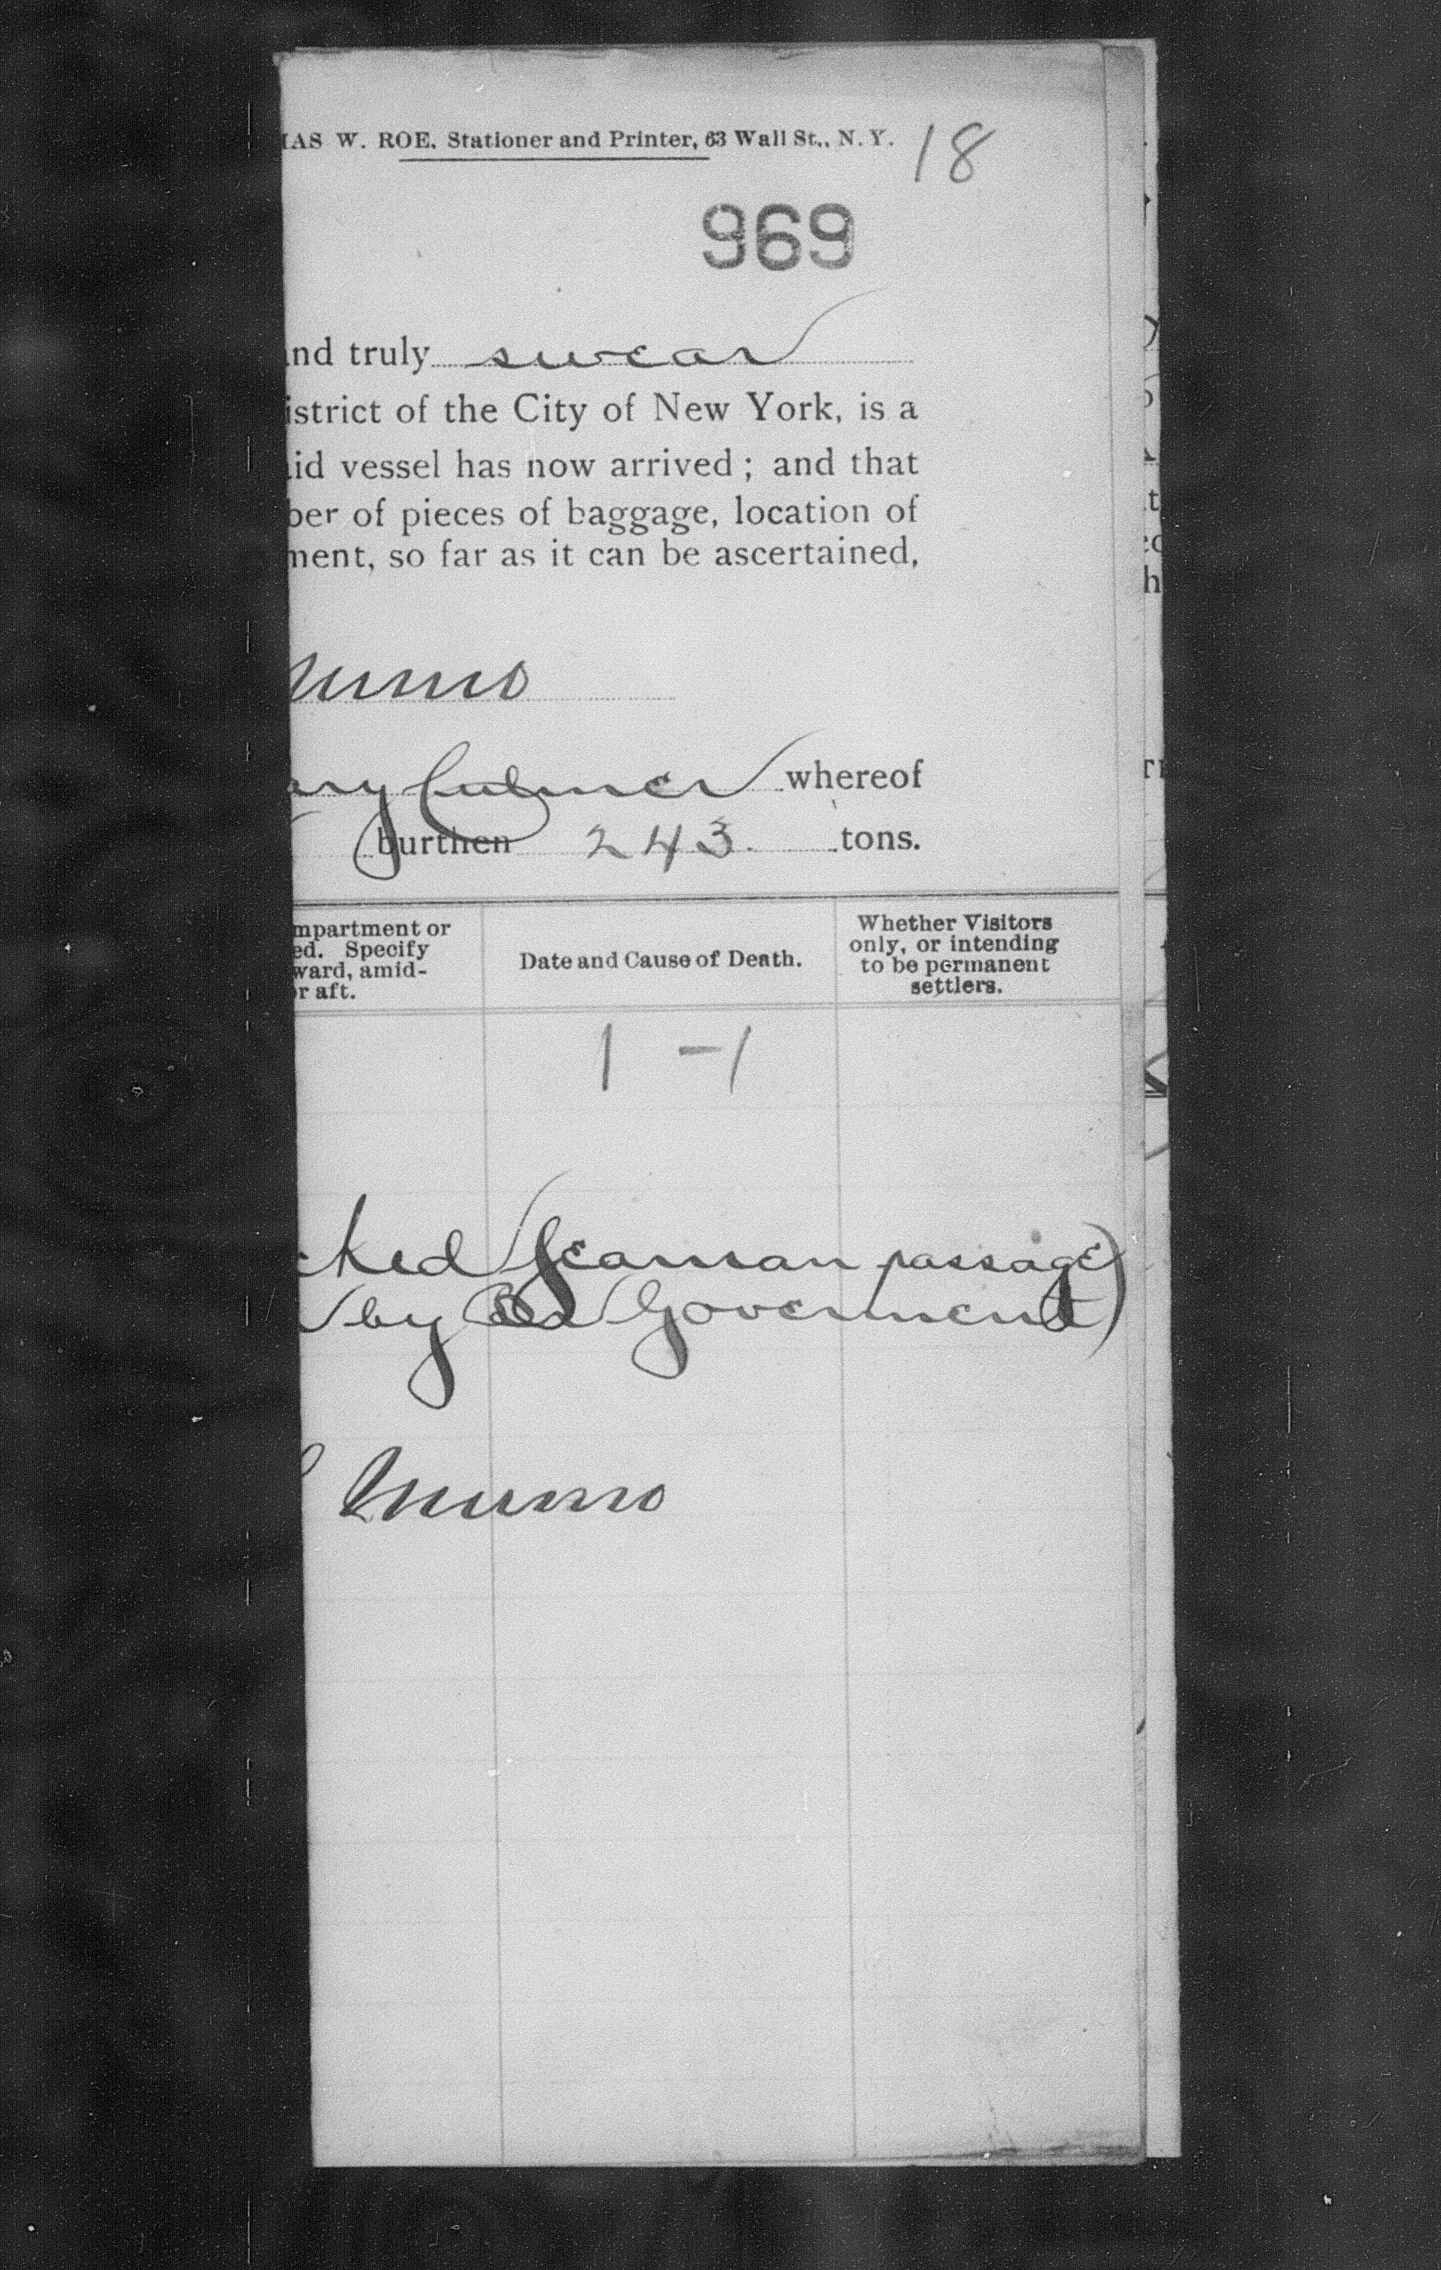 AS W. ROE, Stationer and Printer, 63 Wall St., N. Y. 18
969
nd truly swear
istrict of the City of New York, is a
id vessel has now arrived ; and that
ber of pieces of baggage, location of
ment, so far as it can be ascertained,
Munro
ary Culmer whereof
burthen 243. tons.
mpartment or
ed. Specify
ward, amid-
r aft.
Date and Cause of Death.
Whether Visitors
only, or intending
to be permanent
settlers.
1 - 1
cked (Seaman passage
by Government)
Munro